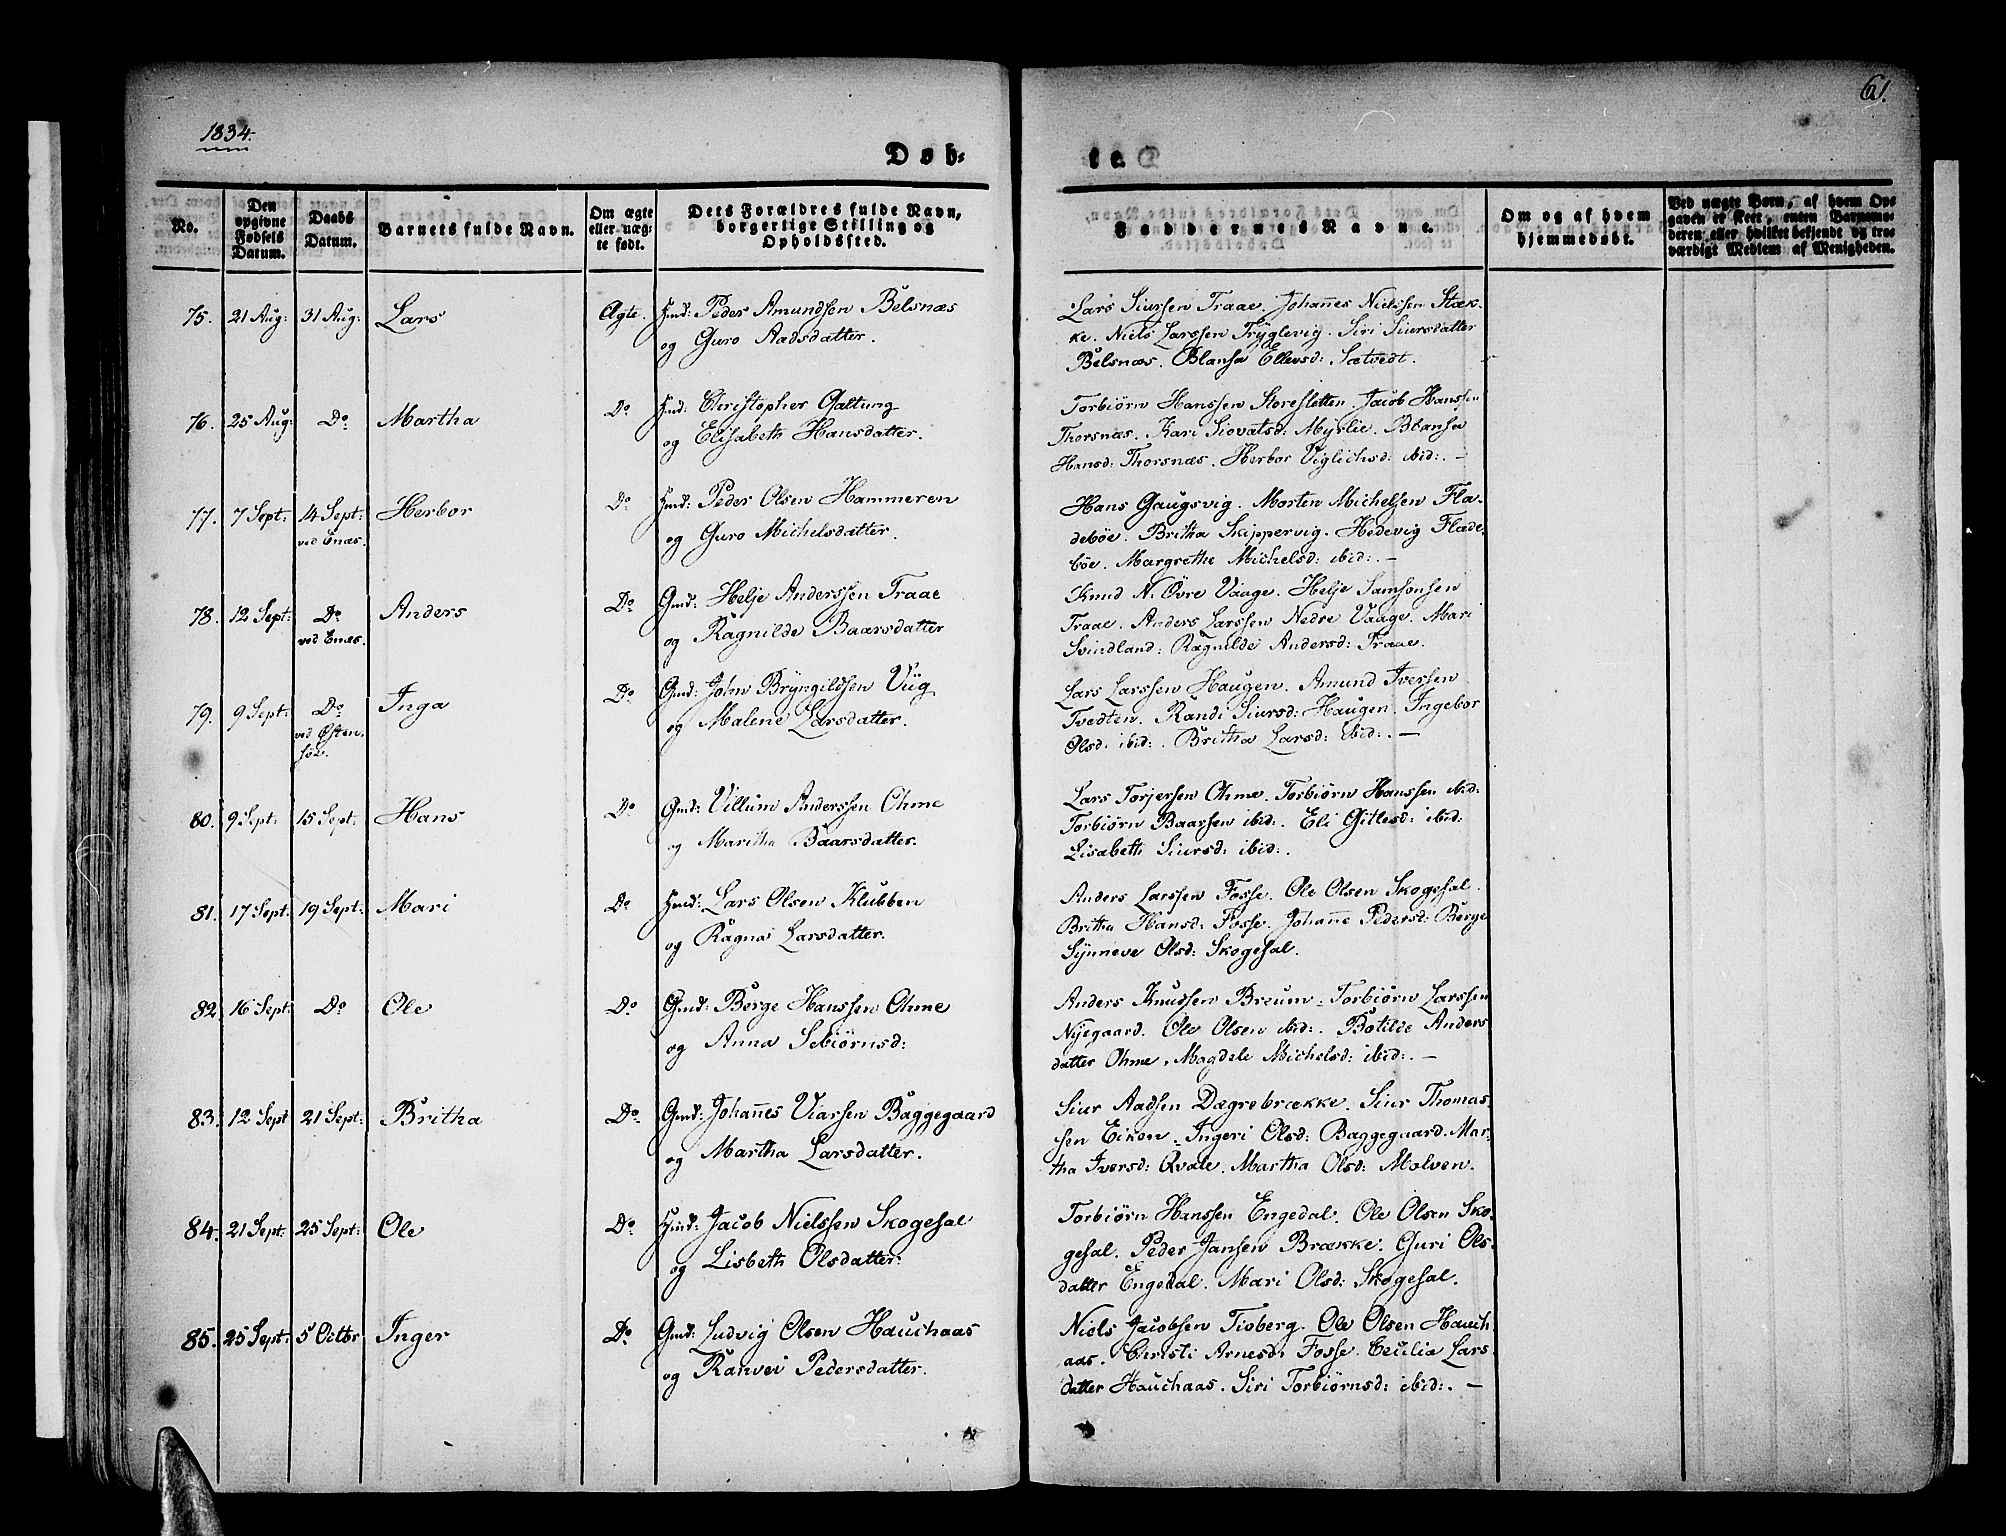 1834.
61.
Døb=
te.
No.
Den opgivne Fødsels Datum.
Daabs Datum.
Barnets fulde Navn.
Om ægte eller uæg-te født.
Dets Forældres fulde Navn, borgerlige Stilling og Opholdssted.
Faddernes Navne.
Om og af hvem hjemmedøbt.
Ved uægte Børn, af hvem Op-gaven er skeet, enten Barnemo-deren eller hvilket bekjendt og tro-værdigt Medlem af Menigheden.
75. 21 Aug: 31 Aug: Lars Ægte. Hmd: Peder Amundsen Belsnæs
og Guro Aadsdatter.
Lars Siursen Traae. Johan̄es Nielssen Stæk-
ke. Niels Larssen Tryglevig. Siri Siursdatter
Belsnæs. Blansa Ellevsd: Sætvedt.
76. 25 Aug: Do Martha Do Hmd: Christopher Galtung
og Elisabeth Hansdatter.
Torbiørn Hanssen Storesletten. Jacob Hanssen
Thorsnæs. Kari Siovatsd: Myrlie. Blansa
Hansd: Thorsnæs. Herbor Viglichsd: ibid:. —
77. 7 Sept: 14 Sept: Herbor Do Hmd: Peder Olsen Hammeren
ved Enæs.
og Guro Michelsdatter.
Hans Gaugsvig. Morten Michelsen Fla-
debøe. Britha Skippervig. Hedevig Flade-
bøe. Margrethe Michelsd: ibid: —
78. 12 Sept: Do Anders Do Gmd: Helje Anderssen Traae
ved Enæs.
og Ragnilde Baarsdatter
Knud N. Øvre Vaage. Helje Samsonsen
Traae. Anders Larssen Nedre Vaage. Mari
Svindland: Ragnilde Andersd: Traae.
79. 9 Sept: Do Inga Do Gmd: John Bryngildsen Viig
ved Østen-
søe.
og Malene Larsdatter.
Lars Larssen Haugen. Amund Iversen
Tvedten. Randi Siursd: Haugen. Ingebor
Olsd: ibid:. Britha Larsd: ibid:. —
80. 9 Sept: 15 Sept: Hans Do Gmd: Villum Anderssen Ohme
og Maritha Baarsdatter.
Lars Torjersen Ohme. Torbiørn Hanssen ibid:
Torbiørn Baarsen ibid:. Eli Gitlesd: ibid:
Lisabeth Siursd: ibid:.
81. 17 Sept: 19 Sept: Mari Do Hmd: Lars Olsen Klubben
og Ragna Larsdatter.
Anders Larssen Fosse. Ole Olsen Skogesal.
Britha Hansd: Fosse. Johan̄e Pedersd: Berge
Synneve Olsd: Skogesal.
82. 16 Sept: Do Ole Do Gmd: Børge Hanssen Ohme
og Anna Sebiørnsd:
Anders Knudsen Breum. Torbiørn Larssen
Nyegaard. Ole Olsen ibid:. Botilde Anders
datter Ohme. Magdele Michelsd: ibid:. —
83. 12 Sept 21 Sept: Britha Do Gmd: Johan̄es Viarsen Baggegaard
og Martha Larsdatter.
Siur Aadsen Dægrebrække. Siur Thomas-
sen Eiken. Ingeri Olsd: Baggegaard. Mar-
tha Iversd: Qvale. Martha Olsd: Molven.
84. 21 Sept: 25 Sept: Ole Do Hmd: Jacob Nielssen Skogesal
og Lisbeth Olsdatter.
Torbiørn Hanssen Engedal. Ole Olsen Sko-
gesal. Peder Jansen Brække. Guri Ols-
datter Engedal. Mari Olsd: Skogesal.
85. 25 Sept: 5 Octbr Inger Do Gmd: Ludvig Olsen Hauchaas
og Ranvei Pedersdatter.
Niels Jacobsen Tioberg. Ole Olsen Hauch-
aas. Christi Arnesd: Fosse. Cecilia Lars-
datter Hauchaas. Siri Torbiørnsd: ibid:. —